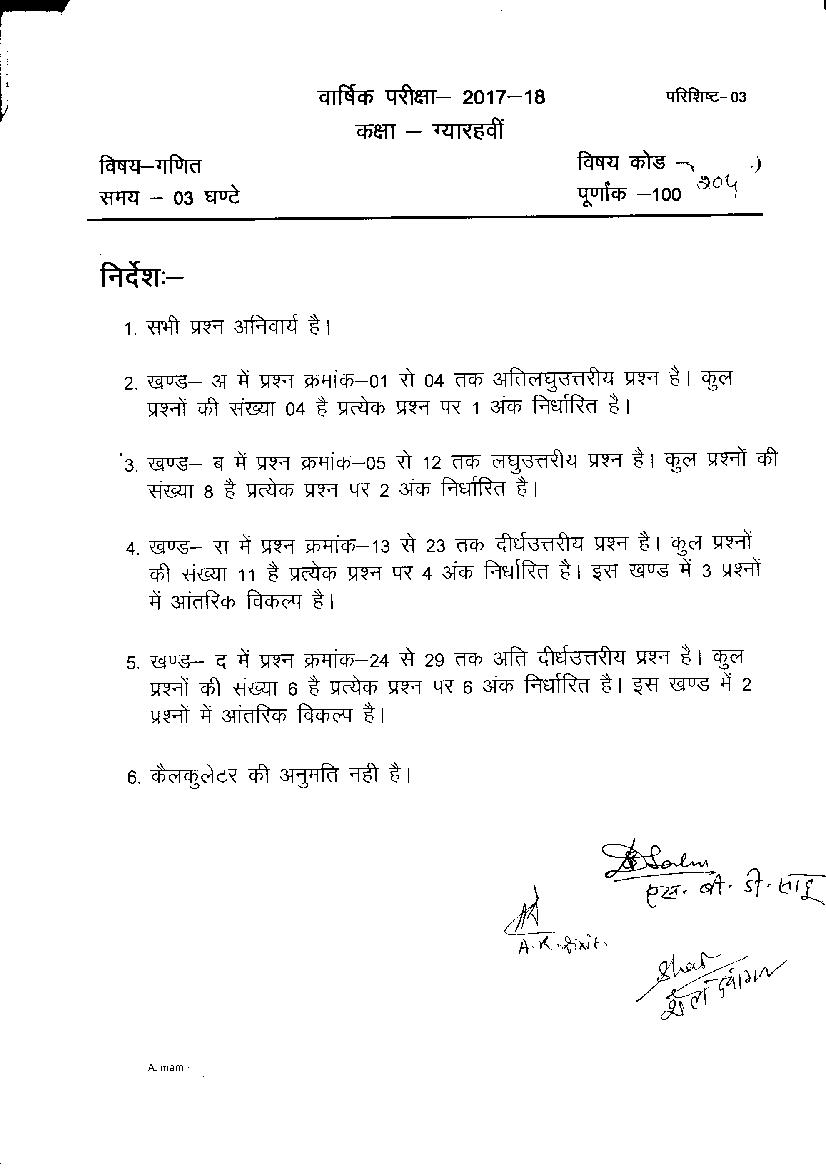 वार्षिक परीक्षा– 2017–18 परिशिष्ट- 03
कक्षा – ग्यारहवीं
विषय–गणित विषय कोड –
समय – 03 घण्टे पूर्णांक –100 204
निर्देशः–
1. सभी प्रश्न अनिवार्य है।
2. खण्ड– अ में प्रश्न क्रमांक–01 से 04 तक अतिलघुउत्तरीय प्रश्न है। कुल
प्रश्नों की संख्या 04 है प्रत्येक प्रश्न पर 1 अंक निर्धारित है।
3. खण्ड– ब में प्रश्न क्रमांक–05 से 12 तक लघुउत्तरीय प्रश्न है। कुल प्रश्नों की
संख्या 8 है प्रत्येक प्रश्न पर 2 अंक निर्धारित है।
4. खण्ड– स में प्रश्न क्रमांक–13 से 23 तक दीर्धउत्तरीय प्रश्न है। कुल प्रश्नों
की संख्या 11 है प्रत्येक प्रश्न पर 4 अंक निर्धारित है। इस खण्ड में 3 प्रश्नों
में आंतरिक विकल्प है।
5. खण्ड– द में प्रश्न क्रमांक–24 से 29 तक अति दीर्धउत्तरीय प्रश्न है। कुल
प्रश्नों की संख्या 6 है प्रत्येक प्रश्न पर 6 अंक निर्धारित है। इस खण्ड में 2
प्रश्नों में आंतरिक विकल्प है।
6. कैलकुलेटर की अनुमति नही है।
एस. बी. डी. साहू
A. K. Dixit.
A. mam